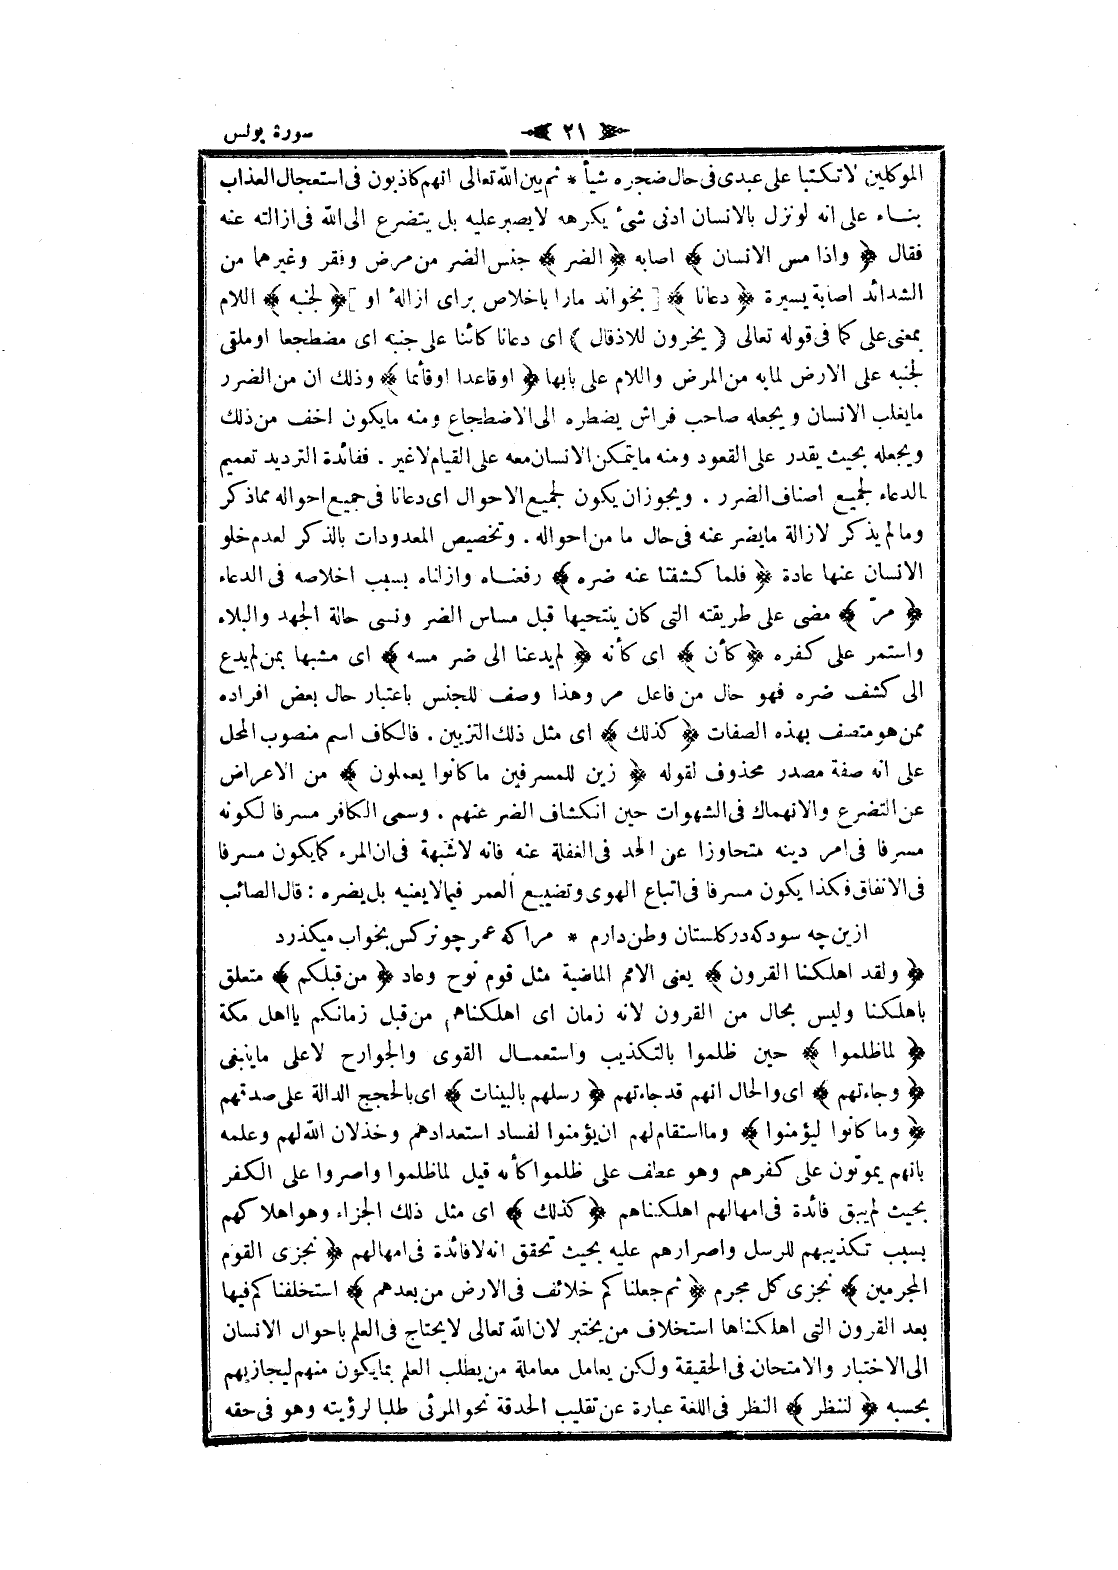 سورة يونس
٢١
الموكلين لاتكتبا على عبدى فى حال ضجره شيأ * ثم بين الله تعالى انهم كاذبون فى استعجال العذاب
بناء على انه لونزل بالانسان ادنى شئ يكرهه لايصبر عليه بل يتضرع الى الله فى ازالته عنه
فقال ﴿ واذا مس الانسان ﴾ اصابه ﴿ الضر ﴾ جنس الضر من مرض وفقر وغيرهما من
الشدائد اصابة يسيرة ﴿ دعانا ﴾ [ بخواند مارا باخلاص براى ازالۀ او ] ﴿ لجنبه ﴾ اللام
بمعنى على كما فى قوله تعالى ( يخرون للاذقال ) اى دعانا كائنا على جنبه اى مضطجعا اوملقى
لجنبه على الارض لمابه من المرض واللام على بابها ﴿ اوقاعدا اوقأئما ﴾ وذلك ان من الضرر
مايغلب الانسان ويجعله صاحب فراش يضطره الى الاضطجاع ومنه مايكون اخف من ذلك
ويجعله بحيث يقدر على القعود ومنه مايتمكن الانسان معه على القيام لاغير . ففائدة الترديد تعميم
الدعاء لجميع اصناف الضرر . ويجوزان يكون لجميع الاحوال اى دعانا فى جميع احواله مماذكر
ومالم يذكر لازالة مايضر عنه فى حال ما من احواله . وتخصيص المعدودات بالذكر لعدم خلو
الانسان عنها عادة ﴿ فلما كشفنا عنه ضره ﴾ رفعناه وازلناه بسبب اخلاصه فى الدعاء
﴿ مرّ ﴾ مضى على طريقته التى كان ينتحيها قبل مساس الضر ونسى حالة الجهد والبلاء
واستمر على كفره ﴿ كأن ﴾ اى كأنه ﴿ لم يدعنا الى ضر مسه ﴾ اى مشبها بمن لم يدع
الى كشف ضره فهو حال من فاعل مر وهذا وصف للجنس باعتبار حال بعض افراده
ممن هو متصف بهذه الصفات ﴿ كذلك ﴾ اى مثل ذلك التزيين . فالكاف اسم منصوب المحل
على انه صفة مصدر محذوف لقوله ﴿ زين للمسرفين ماكانوا يعملون ﴾ من الاعراض
عن التضرع والانهماك فى الشهوات حين انكشاف الضر عنهم . وسمى الكافر مسرفا لكونه
مسرفا فى امر دينه متجاوزا عن الحد فى الغفلة عنه فانه لاشبهة فى ان المرء كمايكون مسرفا
فى الانفاق فكذا يكون مسرفا فى اتباع الهوى وتضييع العمر فيمالايعنيه بل يضره : قال الصائب
ازين چه سود كه در كلستان وطن دارم * مرا كه عمر چو نركس بخواب ميكذرد
﴿ ولقد اهلكنا القرون ﴾ يعنى الامم الماضية مثل قوم نوح وعاد ﴿ من قبلكم ﴾ متعلق
باهلكنا وليس بحال من القرون لانه زمان اى اهلكناهم من قبل زمانكم يااهل مكة
﴿ لماظلموا ﴾ حين ظلموا بالتكذيب واستعمال القوى والجوارح لاعلى ماينبغى
﴿ وجاءتهم ﴾ اى والحال انهم قدجاءتهم ﴿ رسلهم بالبينات ﴾ اى بالحجج الدالة على صدقهم
﴿ وما كانوا ليؤمنوا ﴾ ومااستقام لهم ان يؤمنوا لفساد استعدادهم وخذلان الله لهم وعلمه
بانهم يموتون على كفرهم وهو عطف على ظلموا كأنه قيل لماظلموا واصروا على الكفر
بحيث لم يبق فائدة فى امهالهم اهلكناهم ﴿ كذلك ﴾ اى مثل ذلك الجزاء وهو اهلاكهم
بسبب تكذيبهم للرسل واصرارهم عليه بحيث تحقق انه لافائدة فى امهالهم ﴿ نجزى القوم
المجرمين ﴾ نجزى كل مجرم ﴿ ثم جعلناكم خلائف فى الارض من بعدهم ﴾ استخلفناكم فيها
بعد القرون التى اهلكناها استخلاف من يختبر لان الله تعالى لايحتاج فى العلم باحوال الانسان
الى الاختبار والامتحان فى الحقيقة ولكن يعامل معاملة من يطلب العلم بمايكون منهم ليجازيهم
بحسبه ﴿ لننظر ﴾ النظر فى اللغة عبارة عن تقليب الحدقة نحو المرئى طلبا لرؤيته وهو فى حقه